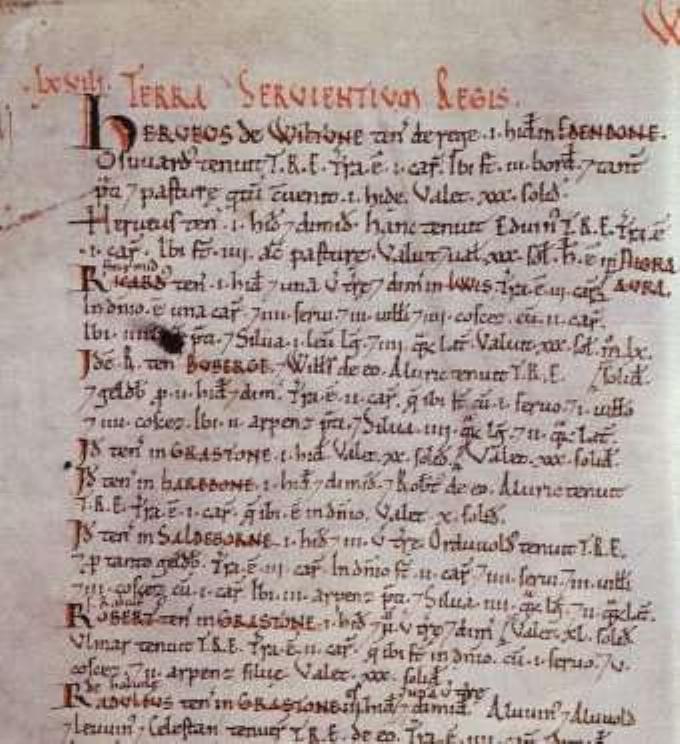 lxviii. TERRA SERVIENTIUM REGIS.
HERVEUS de Wiltune ten' de rege .i. hid' in EDENDONE.
Osuuard' tenuit T.R.E. Tra ē .i. car'. Ibi st .iii. bord' 7 tant'
pti 7 pasturę qtū cuenit .i. hidę. Valet .xxx. solid'.
Herueus ten' .i. hid' 7 dimid'. Hanc tenuit Eduin' T.R.E. Tra ē
.i. car'. Ibi st .iiii. ac pasturę. Valuit 7 ual' .xxx. sol'. H' ē in NIGRA
RICARD' ten' .i. hid' 7 una v' træ 7 dim' in IWIS. Tra ē .iii. car'. AVRA.
In dnio ē una car' 7 .iiii. serui 7 .iii. uilli 7 .iii. coscez cū .ii. car'.
Ibi pti. 7 Silua .i. leu' lg' 7 .iiii. qz lat'. Valuit .xxx. sol'. m' .lx.
Idē R. ten' BOBERGE. 7 Willi' de eo. Aluric tenuit T.R.E. solid'.
7 geldb' p .ii. hid' 7 dim'. Tra ē .ii. car'. q ibi st cū .i. seruo 7 .i. uillo
7 .iiii. coscez. Ibi .ii. arpenz pti. 7 Silua .iiii. qz lg' 7 .ii. qz lat'.
Id' ten' in GRASTONE .i. hid'. Valet .xx. solid'. Valet .xxx. solid'.
Id' ten' in HAREDONE .i. hid' 7 dimid'. 7 Robt' de eo. Aluric tenuit
T.R.E. Tra ē .i. car'. q ibi ē in dnio. Valet .x. solid'.
Id' ten' in SALDEBORNE .i. hid' 7 .iii. v' træ. Orduuold' tenuit T.R.E.
7 p tanto geldb'. Tra ē .iii. car'. In dnio st .ii. car' 7 .iiii. serui 7 .iii. uilli
7 .iii. coscez cū .i. car'. Ibi .iii. arpenz pti. 7 Silua .iiii. qz lg' 7 .ii. qz lat'.
ROBERT ten' in GRASTONE .i. hid' 7 v' træ 7 dim'. Valet .xl. solid'.
Vlmar tenuit T.R.E. Tra ē .ii. car'. q ibi st in dnio. cū .i. seruo 7 .v.
coscez 7 .ii. arpenz siluę. Valet .xxx. solid'.
RADULFUS ten' in GRASTONE hid' 7 dimid'. Aluuin' 7 Aluuold
7 Leuuin' 7 Celestan tenuer' T.R.E. de eo. Tra ē .iii. car'